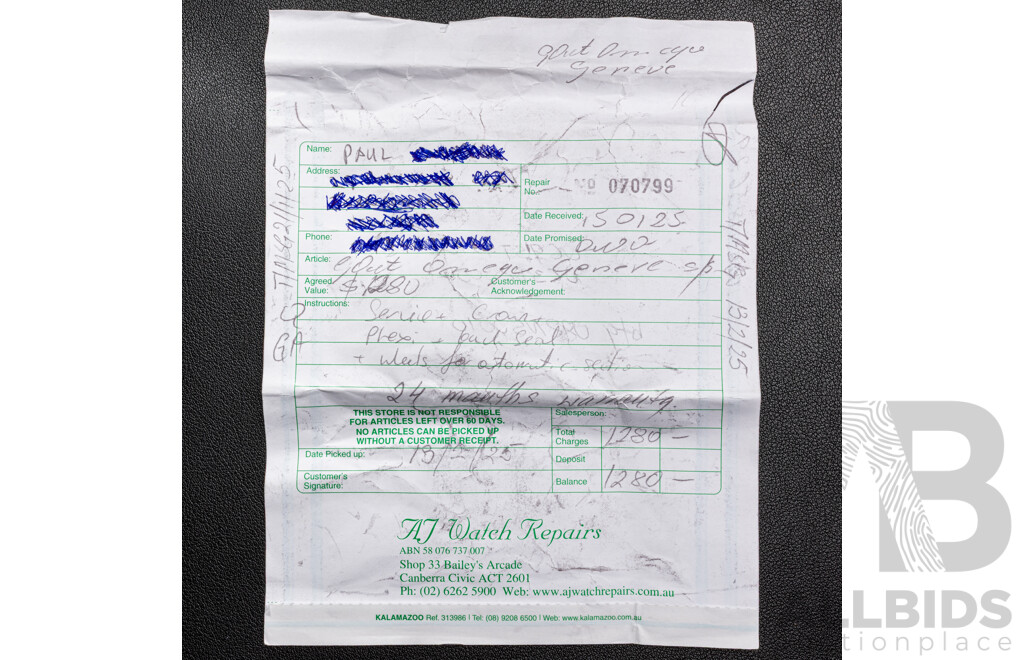 Geneve
Name: PAUL
Address:
Repair No. No 070799
Date Received: 150125
Phone:
Date Promised:
Article: Geneve s/p
Agreed Value: $1280
Customer's Acknowledgement:
Instructions: Service + Crown +
Plexi + back seal
+ wheels for automatic section
24 months warranty.
THIS STORE IS NOT RESPONSIBLE
FOR ARTICLES LEFT OVER 60 DAYS.
NO ARTICLES CAN BE PICKED UP
WITHOUT A CUSTOMER RECEIPT.
Salesperson:
Total Charges 1280 —
Date Picked up: 13/2/25
Deposit
Customer's Signature:
Balance 1280 —
13/2/25
AJ Watch Repairs
ABN 58 076 737 007
Shop 33 Bailey's Arcade
Canberra Civic ACT 2601
Ph: (02) 6262 5900 Web: www.ajwatchrepairs.com.au
KALAMAZOO Ref. 313986 | Tel: (08) 9208 6500 | Web: www.kalamazoo.com.au